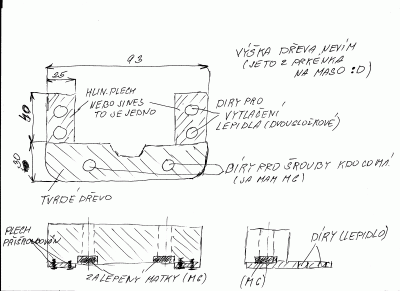 93
VÝŠKA DŘEVA NEVÍM
(JE TO Z PRKÉNKA
NA MASO :D)
25
HLIN. PLECH
NEBO JINES
TO JE JEDNO
DÍRY PRO
VYTLAČENÍ
LEPIDLA (DVOUSLOŽKOVÉ)
40
30
DÍRY PRO ŠROUBY KDO CO MÁ
(JA MAM M6)
TVRDÉ DŘEVO
PLECH
PŘIŠROUBOVÁN
ZALEPENY MATKY (M6)
(M6)
DÍRY (LEPIDLO)